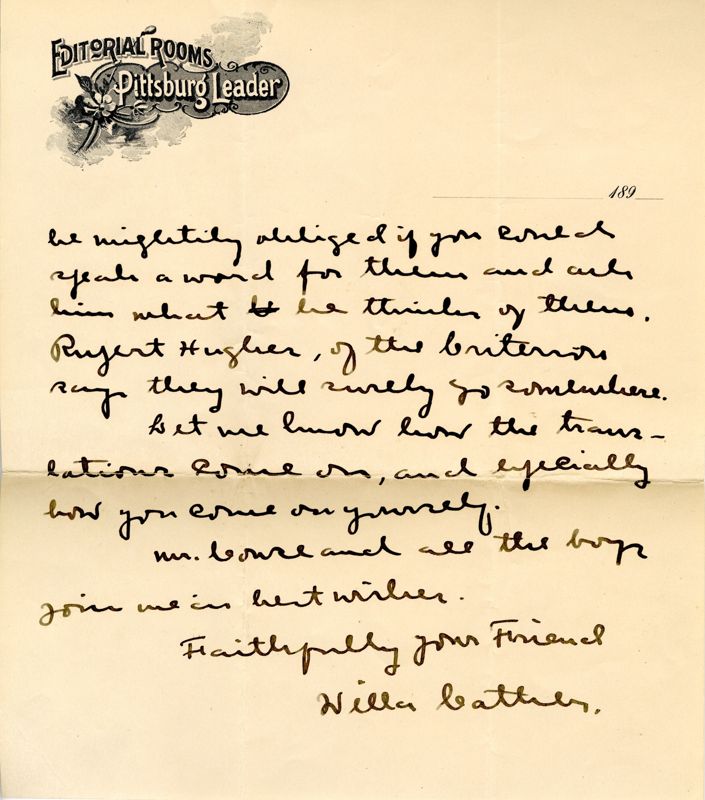 EDITORIAL ROOMS
Pittsburg Leader
189
be mightily obliged if you could
speak a word for them and ask
him what he thinks of them.
Rupert Hughes, of the Criterion
says they will surely go somewhere.
Let me know how the trans-
lations come on, and especially
how you come on yourself.
Mr. Couse and all the boys
join me in best wishes.
Faithfully your Friend
Willa Cather.